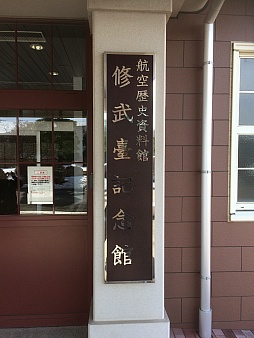 航空歴史資料館
修武臺記念館